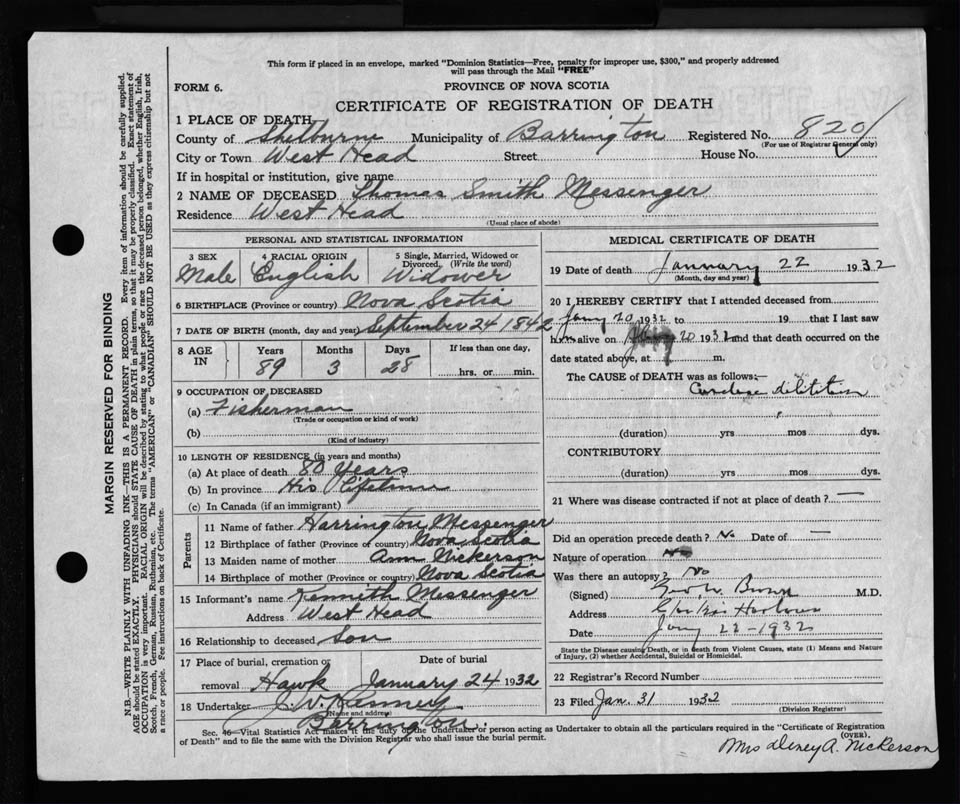 This form if placed in an envelope, marked "Dominion Statistics—Free, penalty for improper use, $300," and properly addressed
will pass through the Mail "FREE"
FORM 6.
PROVINCE OF NOVA SCOTIA
CERTIFICATE OF REGISTRATION OF DEATH
1 PLACE OF DEATH
County of Shelburne Municipality of Barrington Registered No. 820
(For use of Registrar General only)
City or Town West Head Street House No.
If in hospital or institution, give name
2 NAME OF DECEASED Thomas Smith Messenger
Residence West Head
(Usual place of abode)
PERSONAL AND STATISTICAL INFORMATION
3 SEX Male
4 RACIAL ORIGIN English
5 Single, Married, Widowed or Divorced. (Write the word) Widower
6 BIRTHPLACE (Province or country) Nova Scotia
7 DATE OF BIRTH (month, day and year) September 24 1842
8 AGE IN Years 89 Months 3 Days 28 If less than one day, hrs. or min.
9 OCCUPATION OF DECEASED
(a) Fisherman
(Trade or occupation or kind of work)
(b)
(Kind of industry)
10 LENGTH OF RESIDENCE (in years and months)
(a) At place of death 80 Years
(b) In province His Lifetime
(c) In Canada (if an immigrant)
Parents
11 Name of father Harrington Messenger
12 Birthplace of father (Province or country) Nova Scotia
13 Maiden name of mother Ann Nickerson
14 Birthplace of mother (Province or country) Nova Scotia
15 Informant's name Kennith Messenger
Address West Head
16 Relationship to deceased Son
17 Place of burial, cremation or Date of burial
removal Hawk January 24 1932
18 Undertaker J. V. Kenney
(Name and address)
Barrington.
MEDICAL CERTIFICATE OF DEATH
19 Date of death January 22 1932
(Month, day and year)
20 I HEREBY CERTIFY that I attended deceased from
Jany 20 1932 to 19 that I last saw
him alive on Jany 20 1932 and that death occurred on the
date stated above, at m.
The CAUSE of DEATH was as follows:—
Cardiac
(duration) yrs mos dys.
CONTRIBUTORY
(duration) yrs mos dys.
21 Where was disease contracted if not at place of death? —
Did an operation precede death? No Date of —
Nature of operation No
Was there an autopsy? No
(Signed) Brown M.D.
Address
Date Jany 22-1932
State the Disease causing Death, or in death from Violent Causes, state (1) Means and Nature
of Injury, (2) whether Accidental, Suicidal or Homicidal.
22 Registrar's Record Number
23 Filed Jan. 31 1932
(Division Registrar)
Sec. 46—Vital Statistics Act makes it the duty of the Undertaker or person acting as Undertaker to obtain all the particulars required in the "Certificate of Registration
of Death" and to file the same with the Division Registrar who shall issue the burial permit.
(OVER).
Mrs A. Nickerson
MARGIN RESERVED FOR BINDING
N.B.—WRITE PLAINLY WITH UNFADING INK—THIS IS A PERMANENT RECORD. Every item of information should be carefully supplied.
AGE should be stated EXACTLY. PHYSICIANS should STATE CAUSE OF DEATH in plain terms, so that it may be properly classified. Exact statement of
OCCUPATION is very important. RACIAL ORIGIN will be described by stating to what people or race the deceased person belonged, whether English, Irish,
Scotch, French, German, Russian, Ruthenian, etc. The terms "AMERICAN" or "CANADIAN" SHOULD NOT BE USED as they express citizenship but not
a race or people. Fee instructions on back of Certificate.